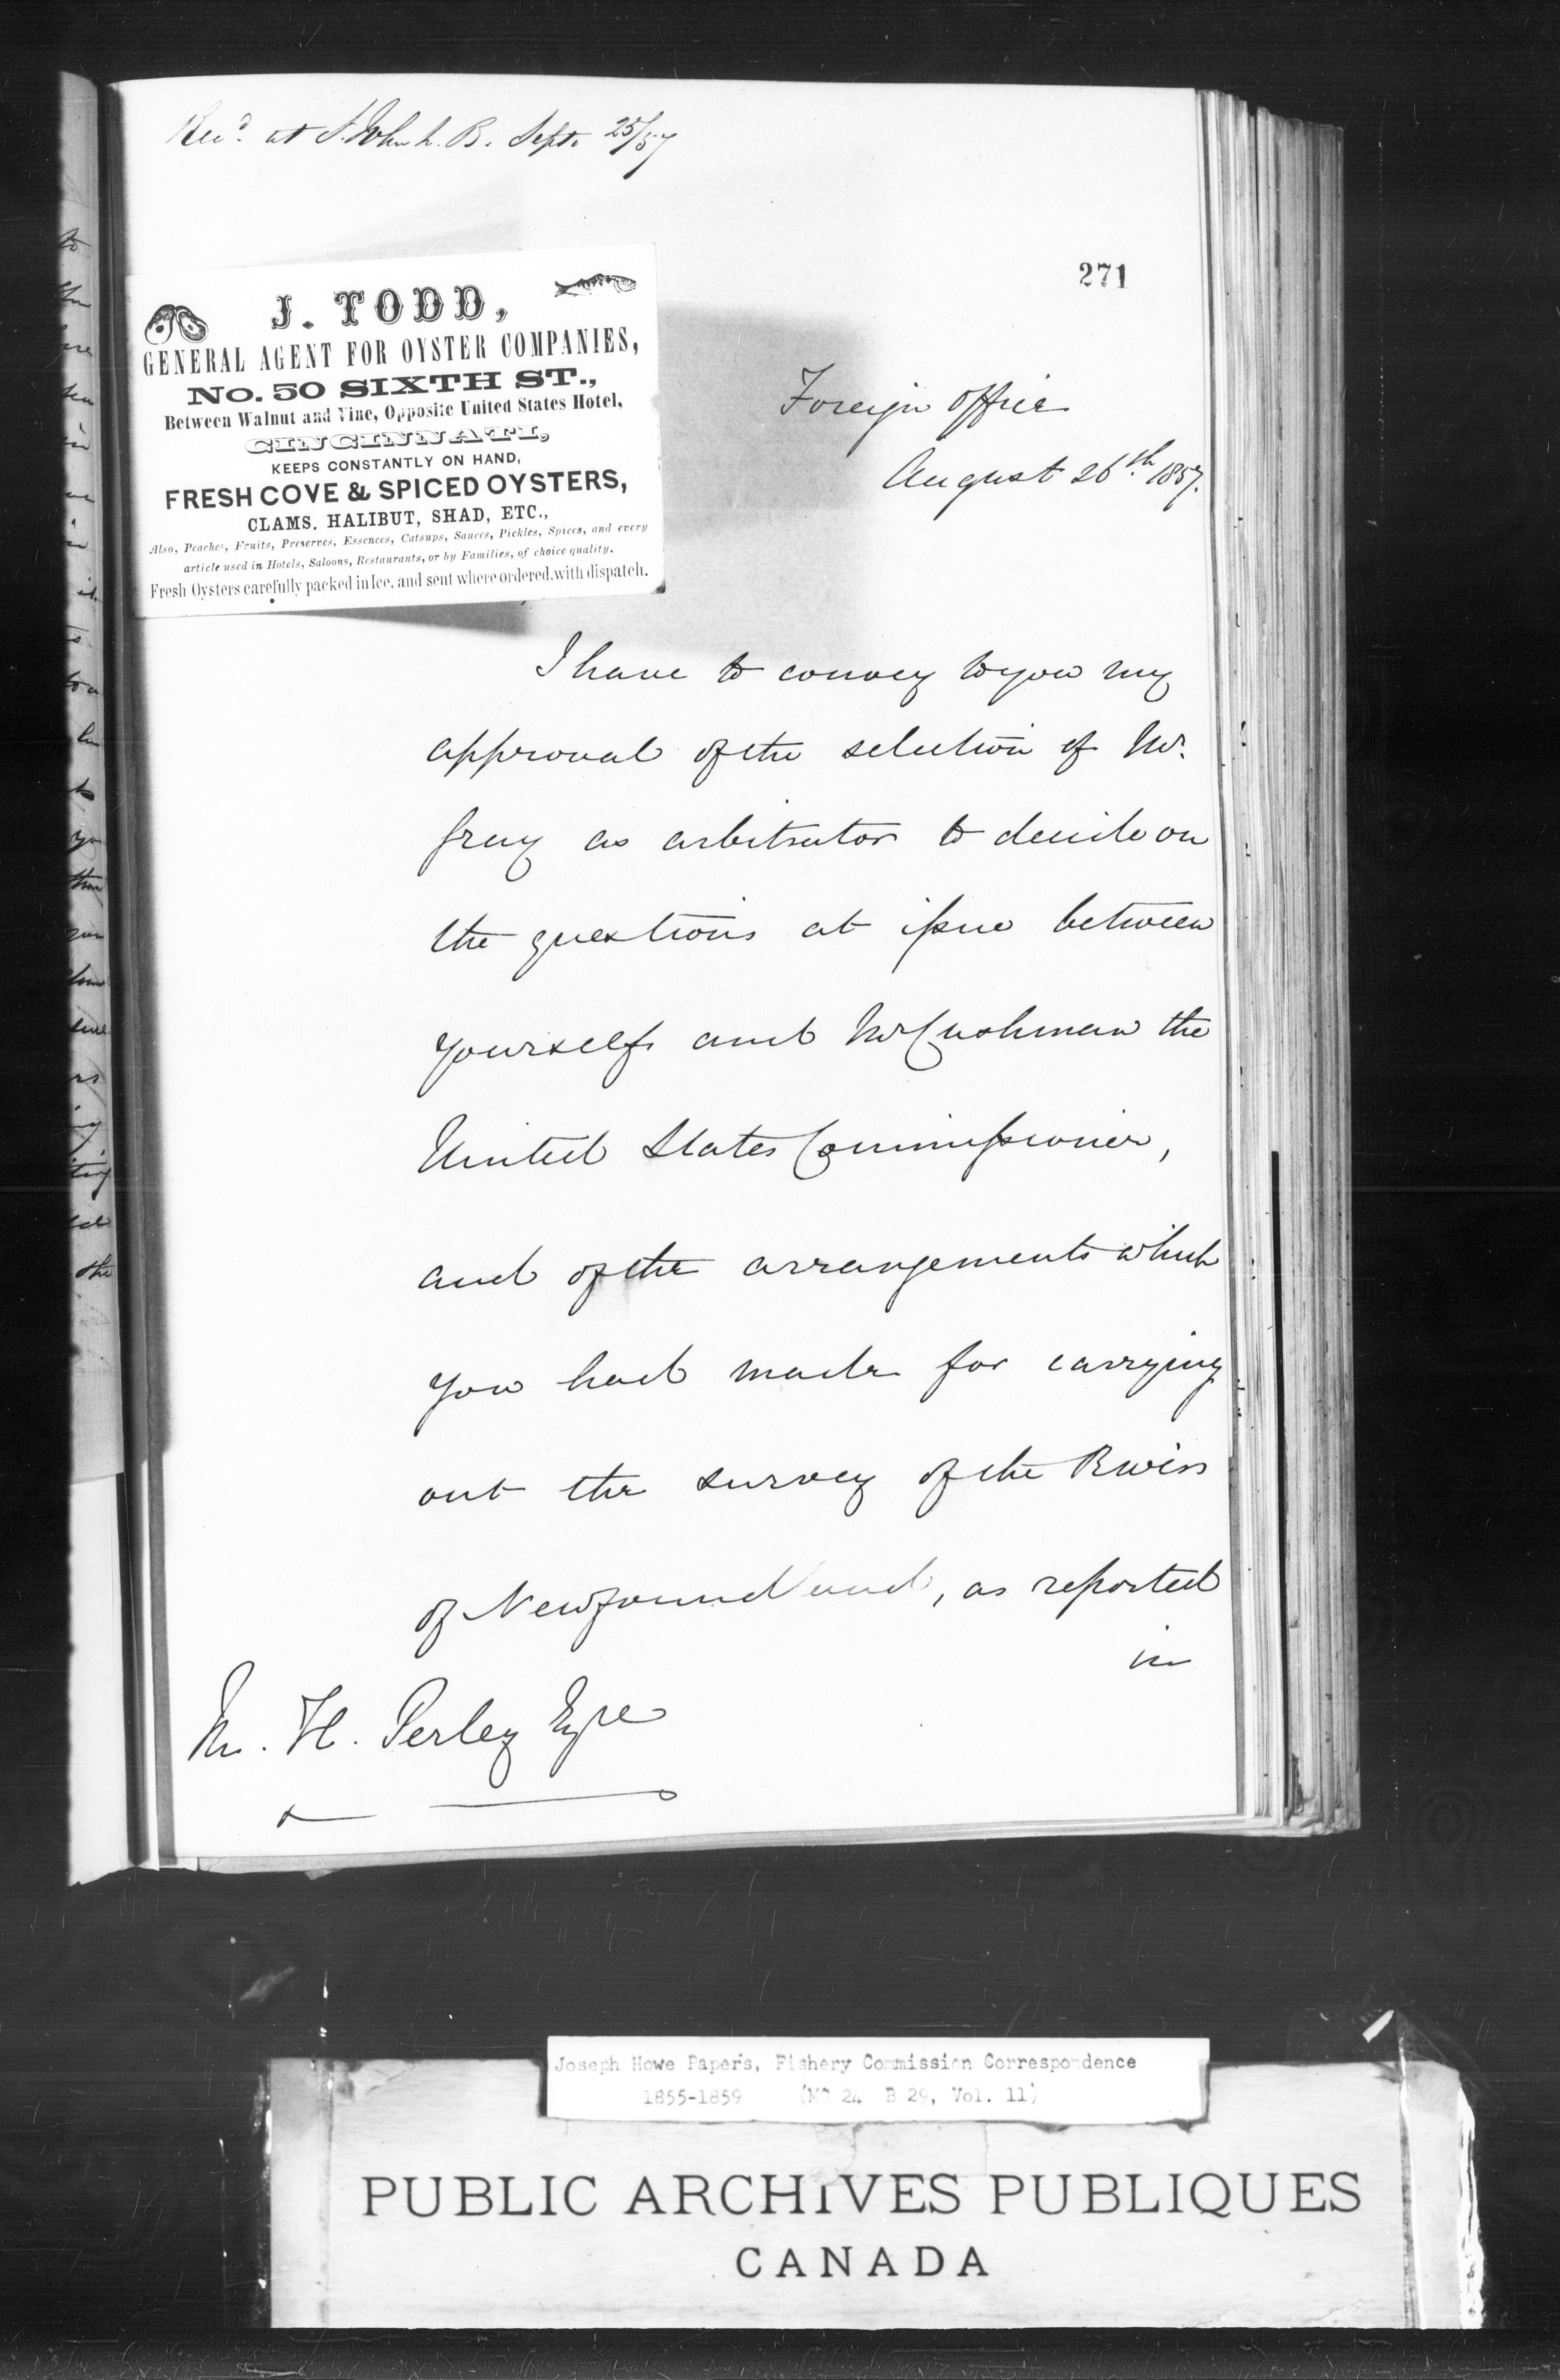 Recd. at St. John N. B. Septr. 25/57
271
J. TODD,
GENERAL AGENT FOR OYSTER COMPANIES,
NO. 50 SIXTH ST.,
Between Walnut and Vine, Opposite United States Hotel,
CINCINNATI,
KEEPS CONSTANTLY ON HAND,
FRESH COVE & SPICED OYSTERS,
CLAMS, HALIBUT, SHAD, ETC.,
Also, Peaches, Fruits, Preserves, Essences, Catsups, Sauces, Pickles, Spices, and every
article used in Hotels, Saloons, Restaurants, or by Families, of choice quality.
Fresh Oysters carefully packed in Ice, and sent where ordered, with dispatch.
Foreign Office
August 26th. 1857.
I have to convey to you my
approval of the selection of Mr.
Gray as arbitrator to decide on
the questions at issue between
yourself and Mr Cushman the
United States Commissioner,
and of the arrangements which
you had made for carrying
out the survey of the Rivers
of Newfoundland, as reported
in
M. H. Perley Esqre
Joseph Howe Papers, Fishery Commission Correspondence
1855-1859 (MG 24 B 29, Vol. 11)
PUBLIC ARCHIVES PUBLIQUES
CANADA